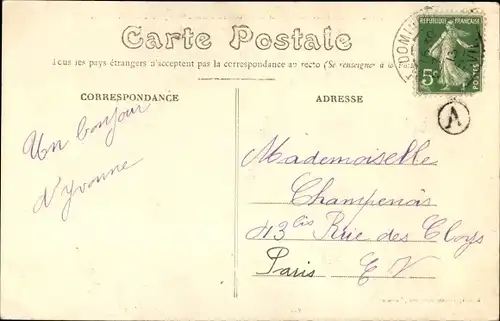 Carte Postale
Tous les pays étrangers n'acceptent pas la correspondance au recto (Se renseigner à la
RÉPUBLIQUE FRANÇAISE
5c
POSTES
CORRESPONDANCE
ADRESSE
A
Un bonjour
d'Yvonne
Mademoiselle
Champenois
43 bis Rue des Cloys
Paris E V